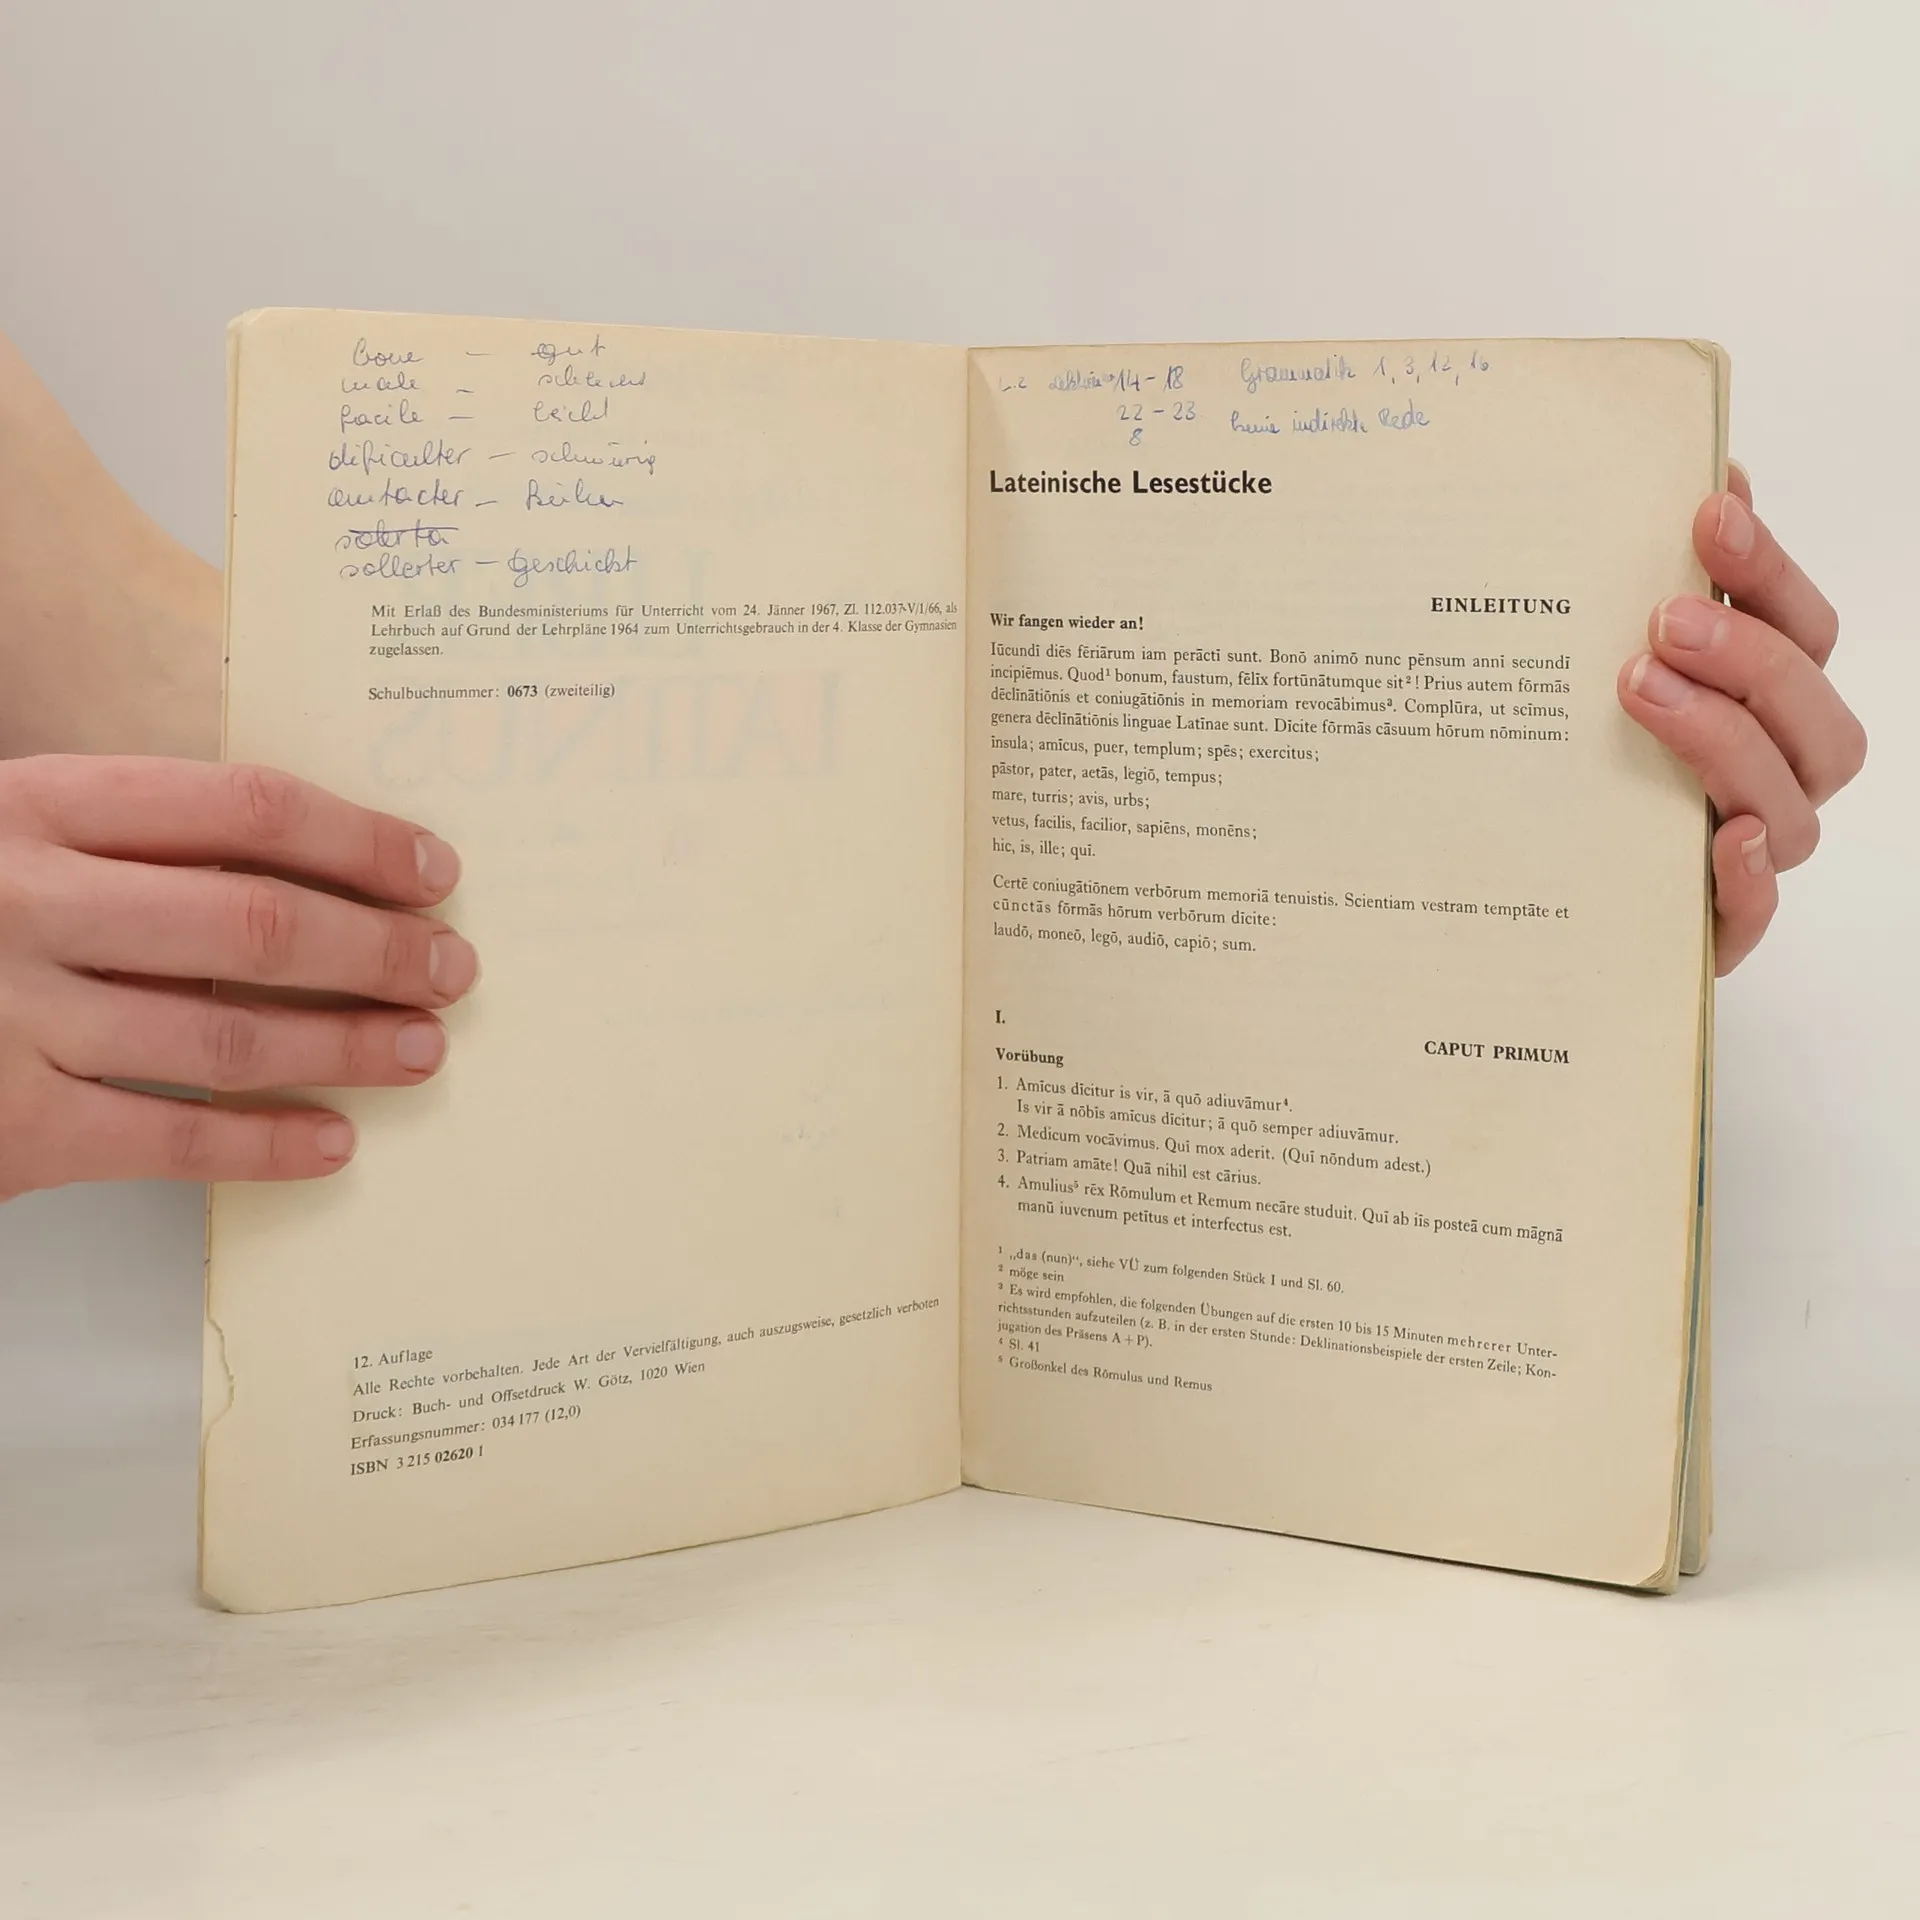 bone — gut
male — schlecht
facile — leicht
dificulter — schwierig
audacter — kühn
solerta
sollerter — geschickt
Mit Erlaß des Bundesministeriums für Unterricht vom 24. Jänner 1967, Zl. 112.037-V/1/66, als
Lehrbuch auf Grund der Lehrpläne 1964 zum Unterrichtsgebrauch in der 4. Klasse der Gymnasien
zugelassen.
Schulbuchnummer: 0673 (zweiteilig)
12. Auflage
Alle Rechte vorbehalten. Jede Art der Vervielfältigung, auch auszugsweise, gesetzlich verboten
Druck: Buch- und Offsetdruck W. Götz, 1020 Wien
Erfassungsnummer: 034 177 (12,0)
ISBN 3 215 02620 1
14 – 18 Grammatik 1, 3, 12, 16
22 – 23 keine indirekte Rede
8
Lateinische Lesestücke
EINLEITUNG
Wir fangen wieder an!
Iūcundī diēs fēriārum iam perāctī sunt. Bonō animō nunc pēnsum annī secundī
incipiēmus. Quod¹ bonum, faustum, fēlīx fortūnātumque sit²! Prius autem fōrmās
dēclīnātiōnis et coniugātiōnis in memoriam revocābimus³. Complūra, ut scīmus,
genera dēclīnātiōnis linguae Latīnae sunt. Dīcite fōrmās cāsuum hōrum nōminum:
īnsula; amīcus, puer, templum; spēs; exercitus;
pāstor, pater, aetās, legiō, tempus;
mare, turris; avis, urbs;
vetus, facilis, facilior, sapiēns, monēns;
hic, is, ille; quī.
Certē coniugātiōnem verbōrum memoriā tenuistis. Scientiam vestram temptāte et
cūnctās fōrmās hōrum verbōrum dīcite:
laudō, moneō, legō, audiō, capiō; sum.
I.
CAPUT PRIMUM
Vorübung
1. Amīcus dīcitur is vir, ā quō adiuvāmur⁴.
Is vir ā nōbīs amīcus dīcitur; ā quō semper adiuvāmur.
2. Medicum vocāvimus. Quī mox aderit. (Quī nōndum adest.)
3. Patriam amāte! Quā nihil est cārius.
4. Amulius⁵ rēx Rōmulum et Remum necāre studuit. Quī ab iīs posteā cum māgnā
manū iuvenum petītus et interfectus est.
¹ „das (nun)“, siehe VÜ zum folgenden Stück I und Sl. 60.
² möge sein
³ Es wird empfohlen, die folgenden Übungen auf die ersten 10 bis 15 Minuten mehrerer Unter-
richtsstunden aufzuteilen (z. B. in der ersten Stunde: Deklinationsbeispiele der ersten Zeile; Kon-
jugation des Präsens A + P).
⁴ Sl. 41
⁵ Großonkel des Rōmulus und Remus